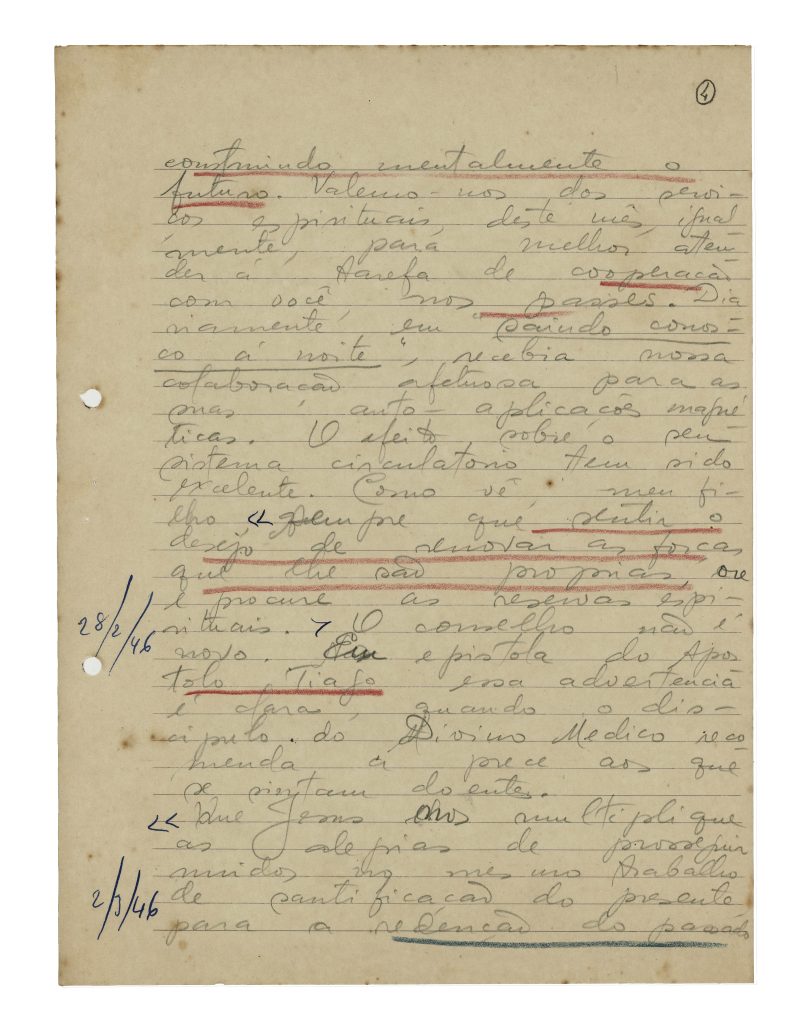 4
construindo mentalmente o
futuro. Valemo-nos dos servi-
ços espirituais, deste mês, igual
mente, para melhor aten-
der á tarefa de cooperação
com você, nos passes. Dia
riamente em "saindo conos-
co á noite", recebia nossa
colaboração afetuosa para as
suas auto-aplicações magné
ticas. O efeito, sobre o seu
sistema circulatorio tem sido
excelente. Como vê, meu fi-
lho, << sempre que sentir o
desejo de renovar as forças
que lhe são proprias, ore
e procure as reservas espi-
rituais. > O conselho não é
28/2/46
novo. Em epistola do Apos
tolo Tiago essa advertencia
é clara, quando o dis-
cipulo do Divino Medico reco
menda a prece aos que
se sintam doentes.
<< Que Jesus nos multiplique
as alegrias de prosseguir
unidos no mesmo trabalho
2/3/46
de santificação do presente
para a redenção do passado